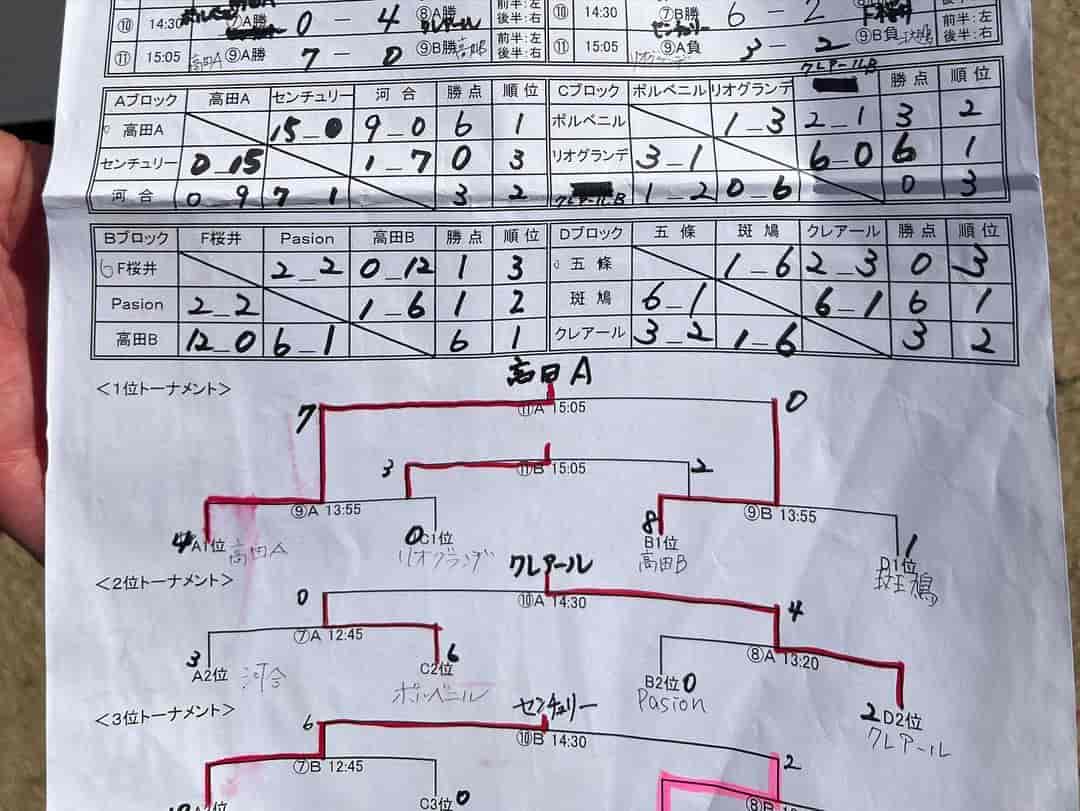 ⑩ 14:30 ⑦A勝 0 - 4 ⑧A勝 クレアール 前半:左 後半:右 ⑩ 14:30 ⑦B勝 センチュリー 6 - 2 F桜井 前半:左 後半:右
⑪ 15:05 高田A ⑨A勝 7 - 0 ⑨B勝 前半:左 後半:右 ⑪ 15:05 リオグランデ ⑨A負 3 - 2 ⑨B負 斑鳩 前半:左 後半:右
Aブロック 高田A センチュリー 河合 勝点 順位
高田A 15-0 9-0 6 1
センチュリー 0-15 1-7 0 3
河合 0-9 7-1 3 2
Cブロック ボルベニル リオグランデ クレアールB 勝点 順位
ボルベニル 1-3 2-1 3 2
リオグランデ 3-1 6-0 6 1
クレアールB 1-2 0-6 0 3
Bブロック F桜井 Pasion 高田B 勝点 順位
F桜井 2-2 0-12 1 3
Pasion 2-2 1-6 1 2
高田B 12-0 6-1 6 1
Dブロック 五條 斑鳩 クレアール 勝点 順位
五條 1-6 2-3 0 3
斑鳩 6-1 6-1 6 1
クレアール 3-2 1-6 3 2
<1位トーナメント>
高田A
7 ⑪A 15:05 0
3 ⑪B 15:05 2
⑨A 13:55 ⑨B 13:55
4 A1位 高田A 0 C1位 リオグランデ 8 B1位 高田B 1 D1位 斑鳩
<2位トーナメント>
クレアール
0 ⑩A 14:30 4
⑦A 12:45 ⑧A 13:20
3 A2位 河合 6 C2位 ボルベニル B2位 0 Pasion 2 D2位 クレアール
<3位トーナメント>
センチュリー
6 ⑩B 14:30 2
⑦B 12:45 ⑧B
C3位 0